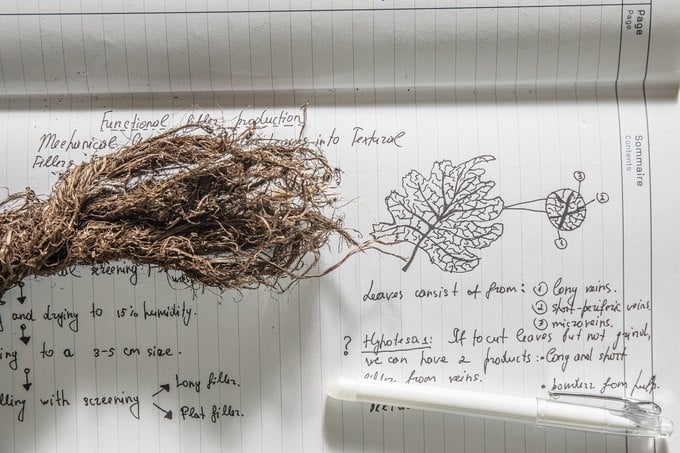 Page
Page
Sommaire
Contents
Functional filler production
Mechanical into Textural
Fillers
screening
and drying to 15% humidity.
to a 3-5 cm size.
with screening
Long filler.
Flat filler.
③
②
①
Leaves consist of from: ① long veins.
② short-periferic veins
③ microveins.
? Hypotesa 1: If to cut leaves but not grind,
we can have 2 products: • long and short
filler from veins.
• powders from pulp.